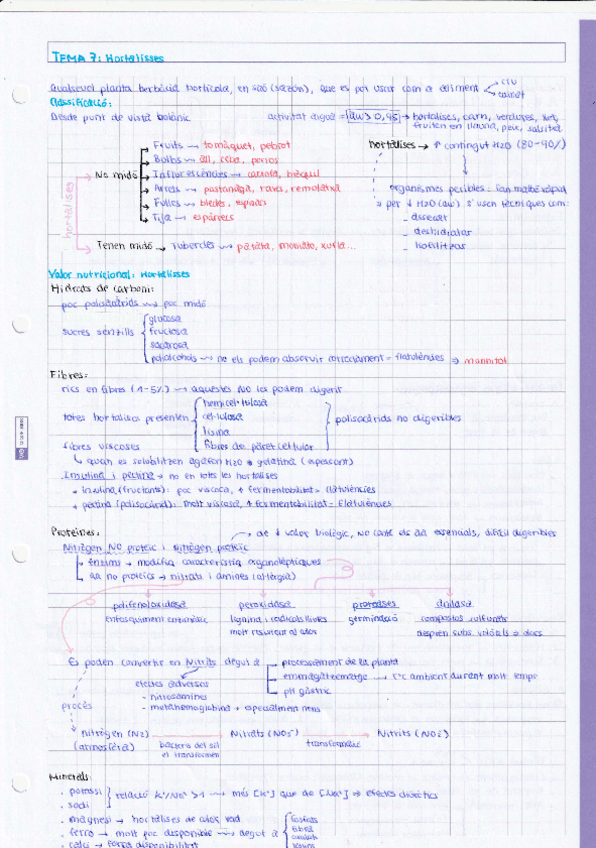 TEMA 7: Hortalisses
Qualsevol planta herbàcia hortícola, en saó (sazón), que es pot usar com a aliment
cru
cuinat
Classificació:
Desde punt de vista botànic
activitat aigua = aw > 0,95 → hortalises, carn, verdures,
fruites en llauna, peix, salsitxa
hortalises → ↑ contingut H2O (80-90%)
hortalises
No midó
Fruits → tomàquet, pebrot
Bulbs → all, ceba, porros
Inflorescències → carxofa, bròquil
Arrels → pastanaga, raves, remolatxa
Fulles → bledes, espinacs
Tija → espàrrecs
Tenen midó → Tubercles → patata, moniato, xufla...
organismes peribles.
per ↓ H2O (aw) s'usen tècniques com:
- dissecar
- deshidratar
- liofilitzar
Valor nutricional: Hortalisses
Hidrats de carboni:
poc polisacàrids → poc midó
sucres senzills
glucosa
fructosa
sacarosa
polialcohols → no els podem absorvir correctament = flatulències ⇒ mannitol
Fibres:
rics en fibres (1-5%) → aquestes NO les podem digerir
totes hortalises presenten
hemicel·lulosa
cel·lulosa
lignina
fibres de paret cel·lular
polisacàrids no digeribles
fibres viscoses
quan es solubilitzen agafen H2O → gelatina (espessant)
Inulina i pectina → no en totes les hortalises
inulina (fructans): poc viscosa, ↑ fermentabilitat = flatulències
pectina (polisacàrid): molt viscosa, ↑ fermentabilitat = Flatulències
Proteïnes:
de ↓ valor biològic, NO conté els aa essencials, difícil digeribles
Nitrògen NO proteic i nitrògen proteic
Enzims → modifica característica organolèptiques
aa no proteics → nitrats i amines (al·lèrgia)
polifenoloxidasa
peroxidasa
proteases
aliinasa
enfosquiment enzimàtic
lignina i radicals lliures
molt resistent al calor
germinació
compostos sulfurats
despren subs. volàtils = olors
Es poden convertir en Nitrits degut a
processament de la planta
emmagatzematge → tªC ambient durant molt temps
pH gàstric
efectes adversos
- nitrosamines
- metahemoglobina → especialment nens
procés
Nitrògen (N2)
(atmosfèra)
bacteris del sòl
el transformen
Nitrats (NO3⁻)
transformació
Nitrits (NO2⁻)
Minerals:
. potassi
. sodi
relació K⁺/Na⁺ > 1 → més [K⁺] que de [Na⁺] ⇒ efectes diürètics
. magnesi → hortalises de color verd
. ferro → molt poc disponible → degut a
fosfats
fibra
oxalats
. calci → baixa disponibilitat